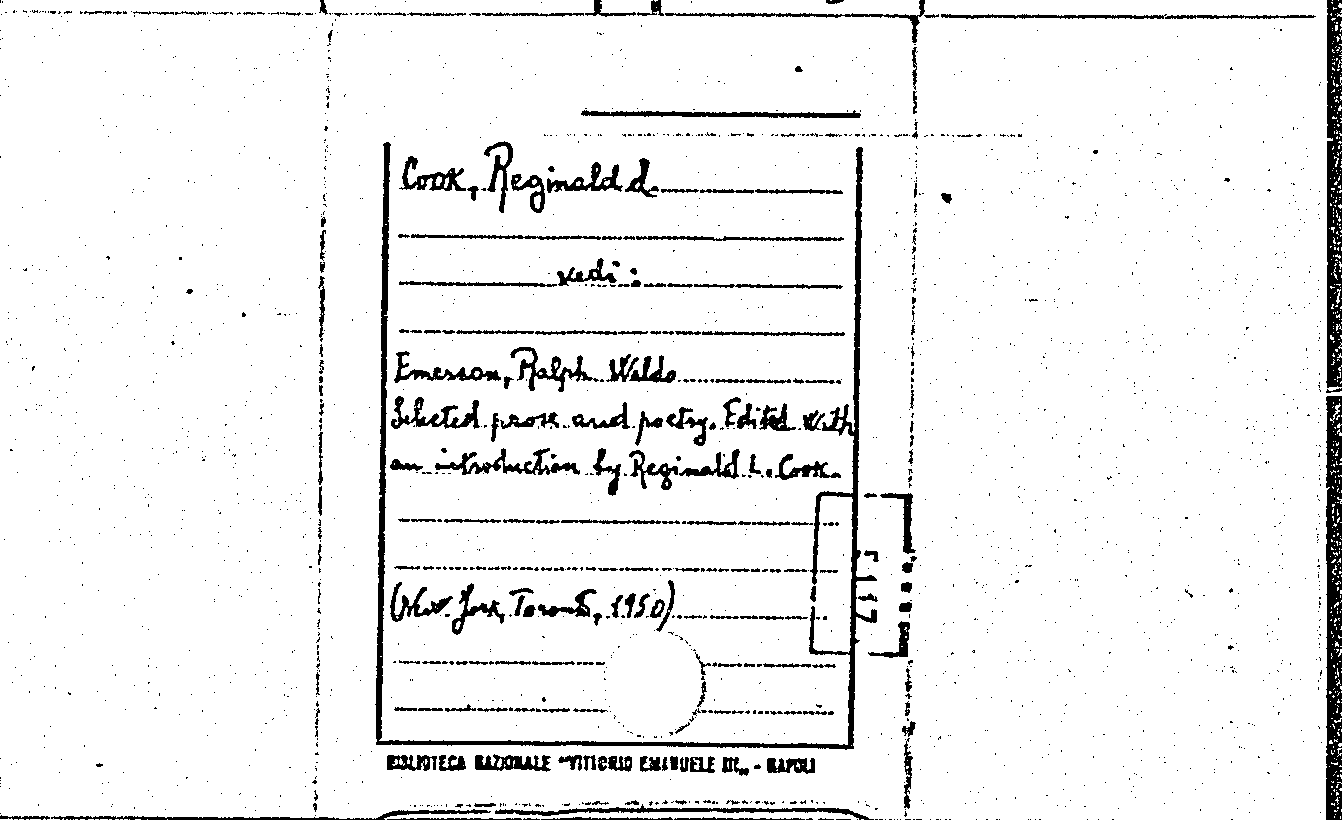 Cook, Reginald L.
vedi:
Emerson, Ralph Waldo
Selected prose and poetry. Edited with
an introduction by Reginald L. Cook.
(New York, Toronto, 1950)
BIBLIOTECA NAZIONALE "VITTORIO EMANUELE III" - NAPOLI